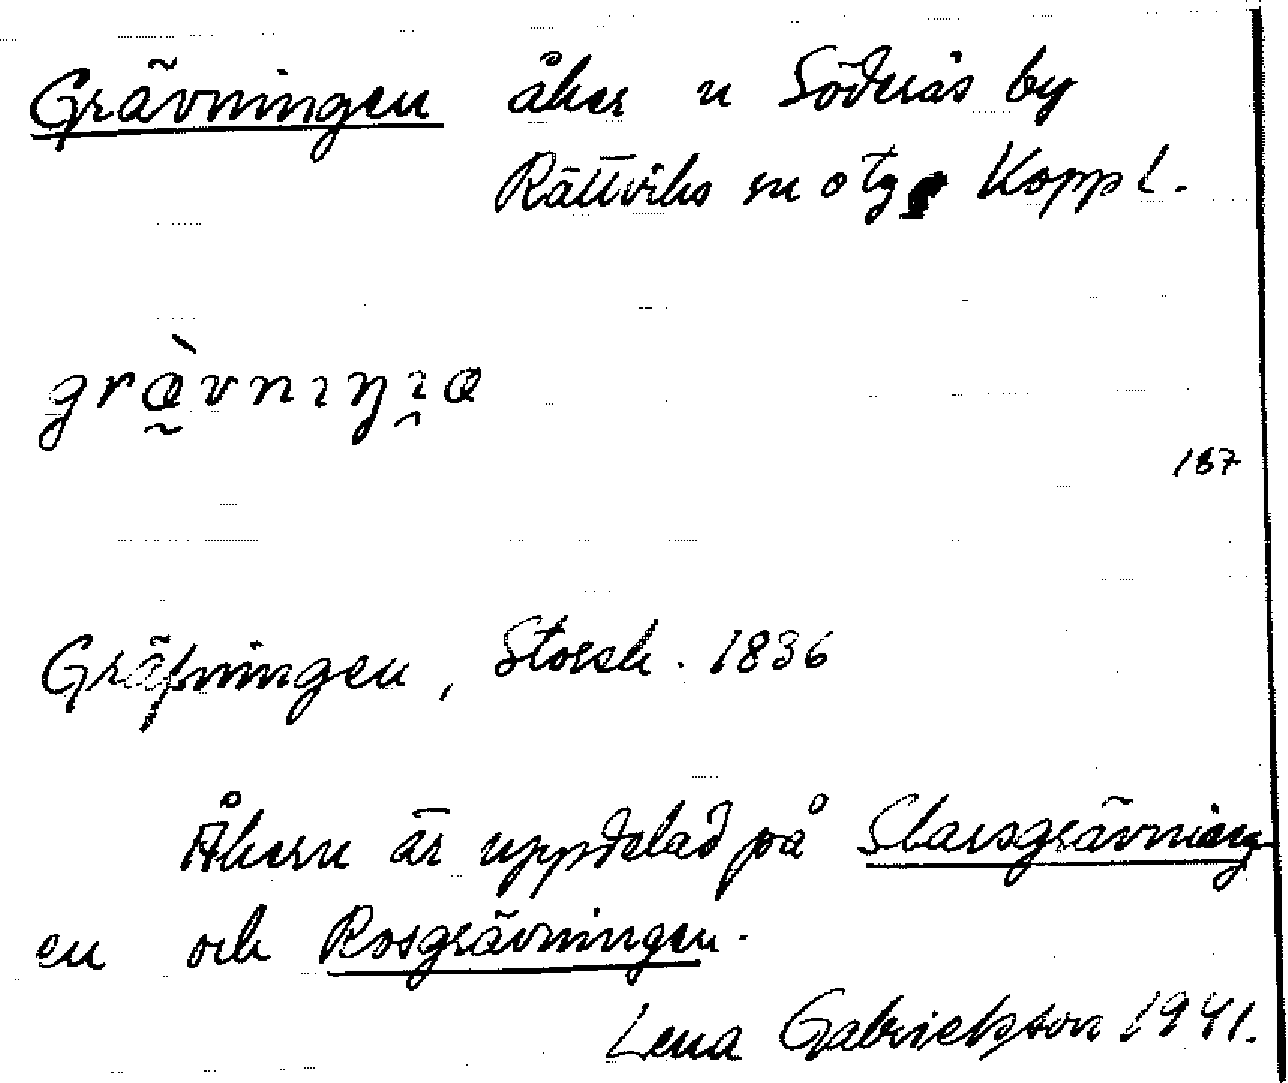 Grävningen åker n Söderås by
Rättviks sn o tg Koppl.
græ̀vnıŋıæ
187
Gräfningen, Storsk. 1836
Åkern är uppdelad på Slarsgrävning
en och Rosgrävningen.
Lena Gabrielsson 1941.